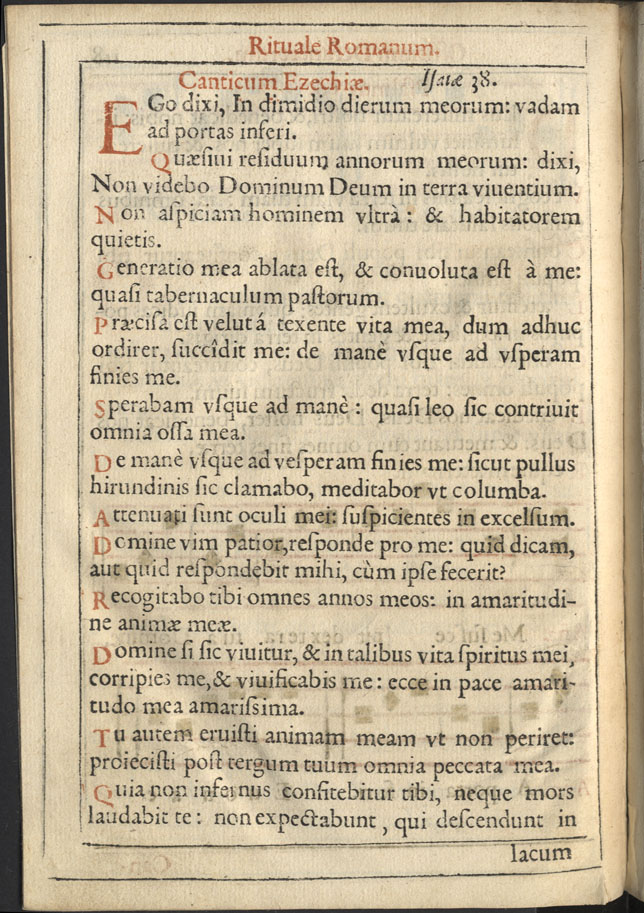 Rituale Romanum.
Canticum Ezechiæ. Isaiæ 38.
EGo dixi, In dimidio dierum meorum: vadam
ad portas inferi.
Quæſiui reſiduum annorum meorum: dixi,
Non videbo Dominum Deum in terra viuentium.
Non aſpiciam hominem vltrà: & habitatorem
quietis.
Generatio mea ablata eſt, & conuoluta eſt à me:
quaſi tabernaculum paſtorum.
Præciſa eſt velut á texente vita mea, dum adhuc
ordirer, ſuccîdit me: de manè vſque ad vſperam
finies me.
Sperabam vſque ad manè: quaſi leo ſic contriuit
omnia oſſa mea.
De manè vſque ad veſperam finies me: ſicut pullus
hirundinis ſic clamabo, meditabor vt columba.
Attenuati ſunt oculi mei: ſuſpicientes in excelſum.
Domine vim patior, reſponde pro me: quid dicam,
aut quid reſpondebit mihi, cùm ipſe fecerit?
Recogitabo tibi omnes annos meos: in amaritudi-
ne animæ meæ.
Domine ſi ſic viuitur, & in talibus vita ſpiritus mei,
corripies me, & viuificabis me: ecce in pace amari-
tudo mea amariſſima.
Tu autem eruiſti animam meam vt non periret:
proieciſti poſt tergum tuum omnia peccata mea.
Quia non infernus confitebitur tibi, neque mors
laudabit te: non expectabunt, qui deſcendunt in
lacum